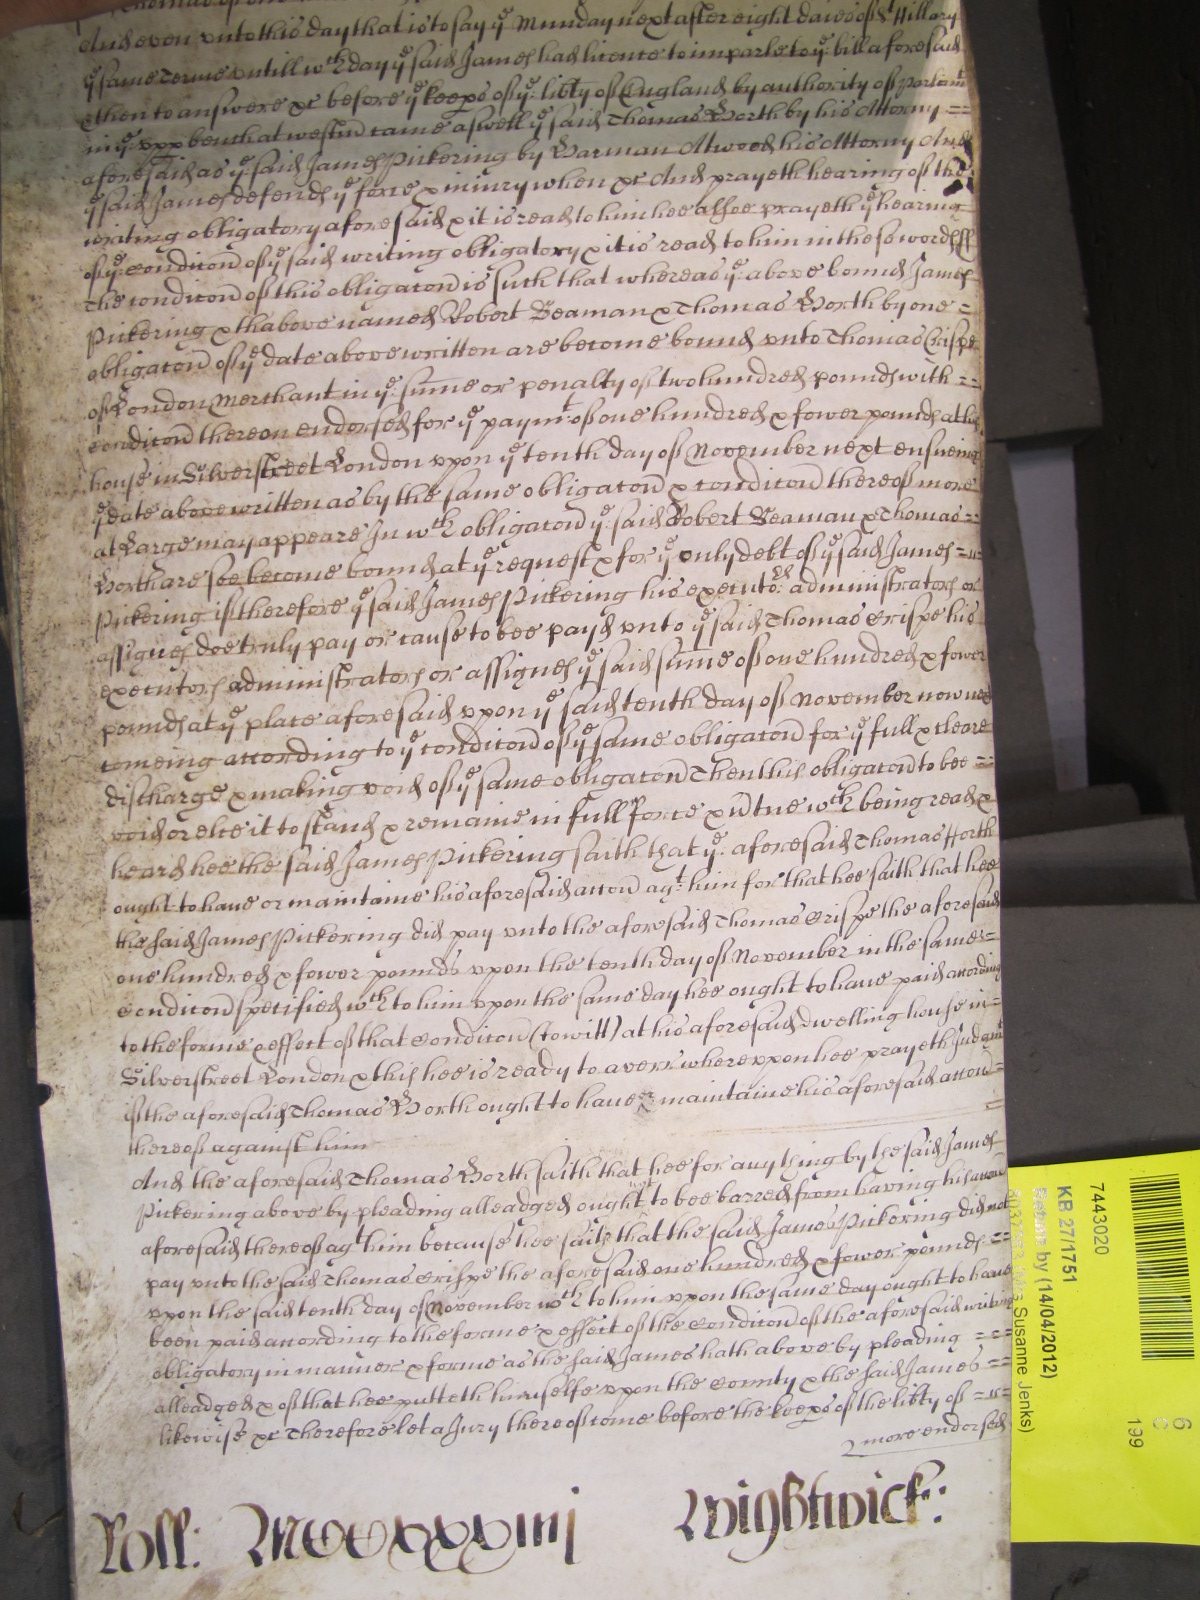 And even unto this day that is to say ye Munday next after eight daies of St Hillary
ye same Terme untill wch day ye said James had licence to imparle to ye bill aforesaid
& then to answere &c before ye keeps of ye libty of England by authority of Parliamt
in ye upp bench at westm came aswell ye said Thomas North by his Attorny
aforesaid as ye said James Pickering by Harman Atwood his Attorny And
ye said James defends ye force & injury when &c And prayeth hearing of the
writing obligatory aforesaid & it is read to him hee alsoe prayeth ye hearing
of ye condicon of ye said writing obligatory & it is read to him in these words ss
The condicon of this obligacon is such that whereas ye above bound James
Pickering & thabove named Robert Seaman & Thomas North by one
obligacon of ye date above written are become bound unto Thomas Crispe
of London Merchant in ye sume or penalty of two hundred pounds with
condicon thereon endorsed for ye paymt of one hundred & fower pounds at his
house in Silverstreet London upon ye tenth day of November next ensueing
ye date above written as by the same obligacon & condicon thereof more
at Large may appeare In wch obligacon ye said Robert Seaman & Thomas
North are soe become bound at ye request & for ye only debt of ye said James
Pickering if therefore ye said James Pickering his executors administrators or
assignes doe truly pay or cause to bee payd unto ye said Thomas Crispe his
executors administrators or assignes ye said sume of one hundred & fower
pounds at ye place aforesaid upon ye said tenth day of November now next
comeing according to ye condicon of ye same obligacon for ye full & cleare
discharge & making void of ye same obligacon Then this obligacon to bee
void or else it to stand & remaine in full force & vertue wch being read &
heard hee the said James Pickering saith that ye aforesaid Thomas North
ought to have or maintaine his aforesaid accon agt him for that hee saith that hee
the said James Pickering did pay unto the aforesaid Thomas Crispe the aforesaid
one hundred & fower pounds upon the tenth day of November in the same
condicon specified wch to him upon the same day hee ought to have paid according
to the forme & effect of that condicon (to witt) at his aforesaid dwelling house in
Silverstreet London & this hee is ready to averr whereupon hee prayeth Judgmt
if the aforesaid Thomas North ought to have or maintaine his aforesaid accon
thereof against him
And the aforesaid Thomas North saith that hee for any thing by the said James
Pickering above by pleading alleadged ought not to bee barred from having his accon
aforesaid thereof agt him because hee saith that the said James Pickering did not
pay unto the said Thomas Crispe the aforesaid one hundred & fower pounds
upon the said tenth day of November wch to him upon the same day ought to have
been paid according to the forme & effect of the condicon of the aforesaid writing
obligatory in manner & forme as the said James hath above by pleading
alleadged & of that hee putteth himselfe upon the County & the said James
likewise &c Therefore let a Jury thereof come before the keeps of the libty of
more endorsed
Roll: MCCCxxxiiij Wightwick:
7443020
KB 27/1751
Return by (14/04/2012)
Susanne Jenks)
199